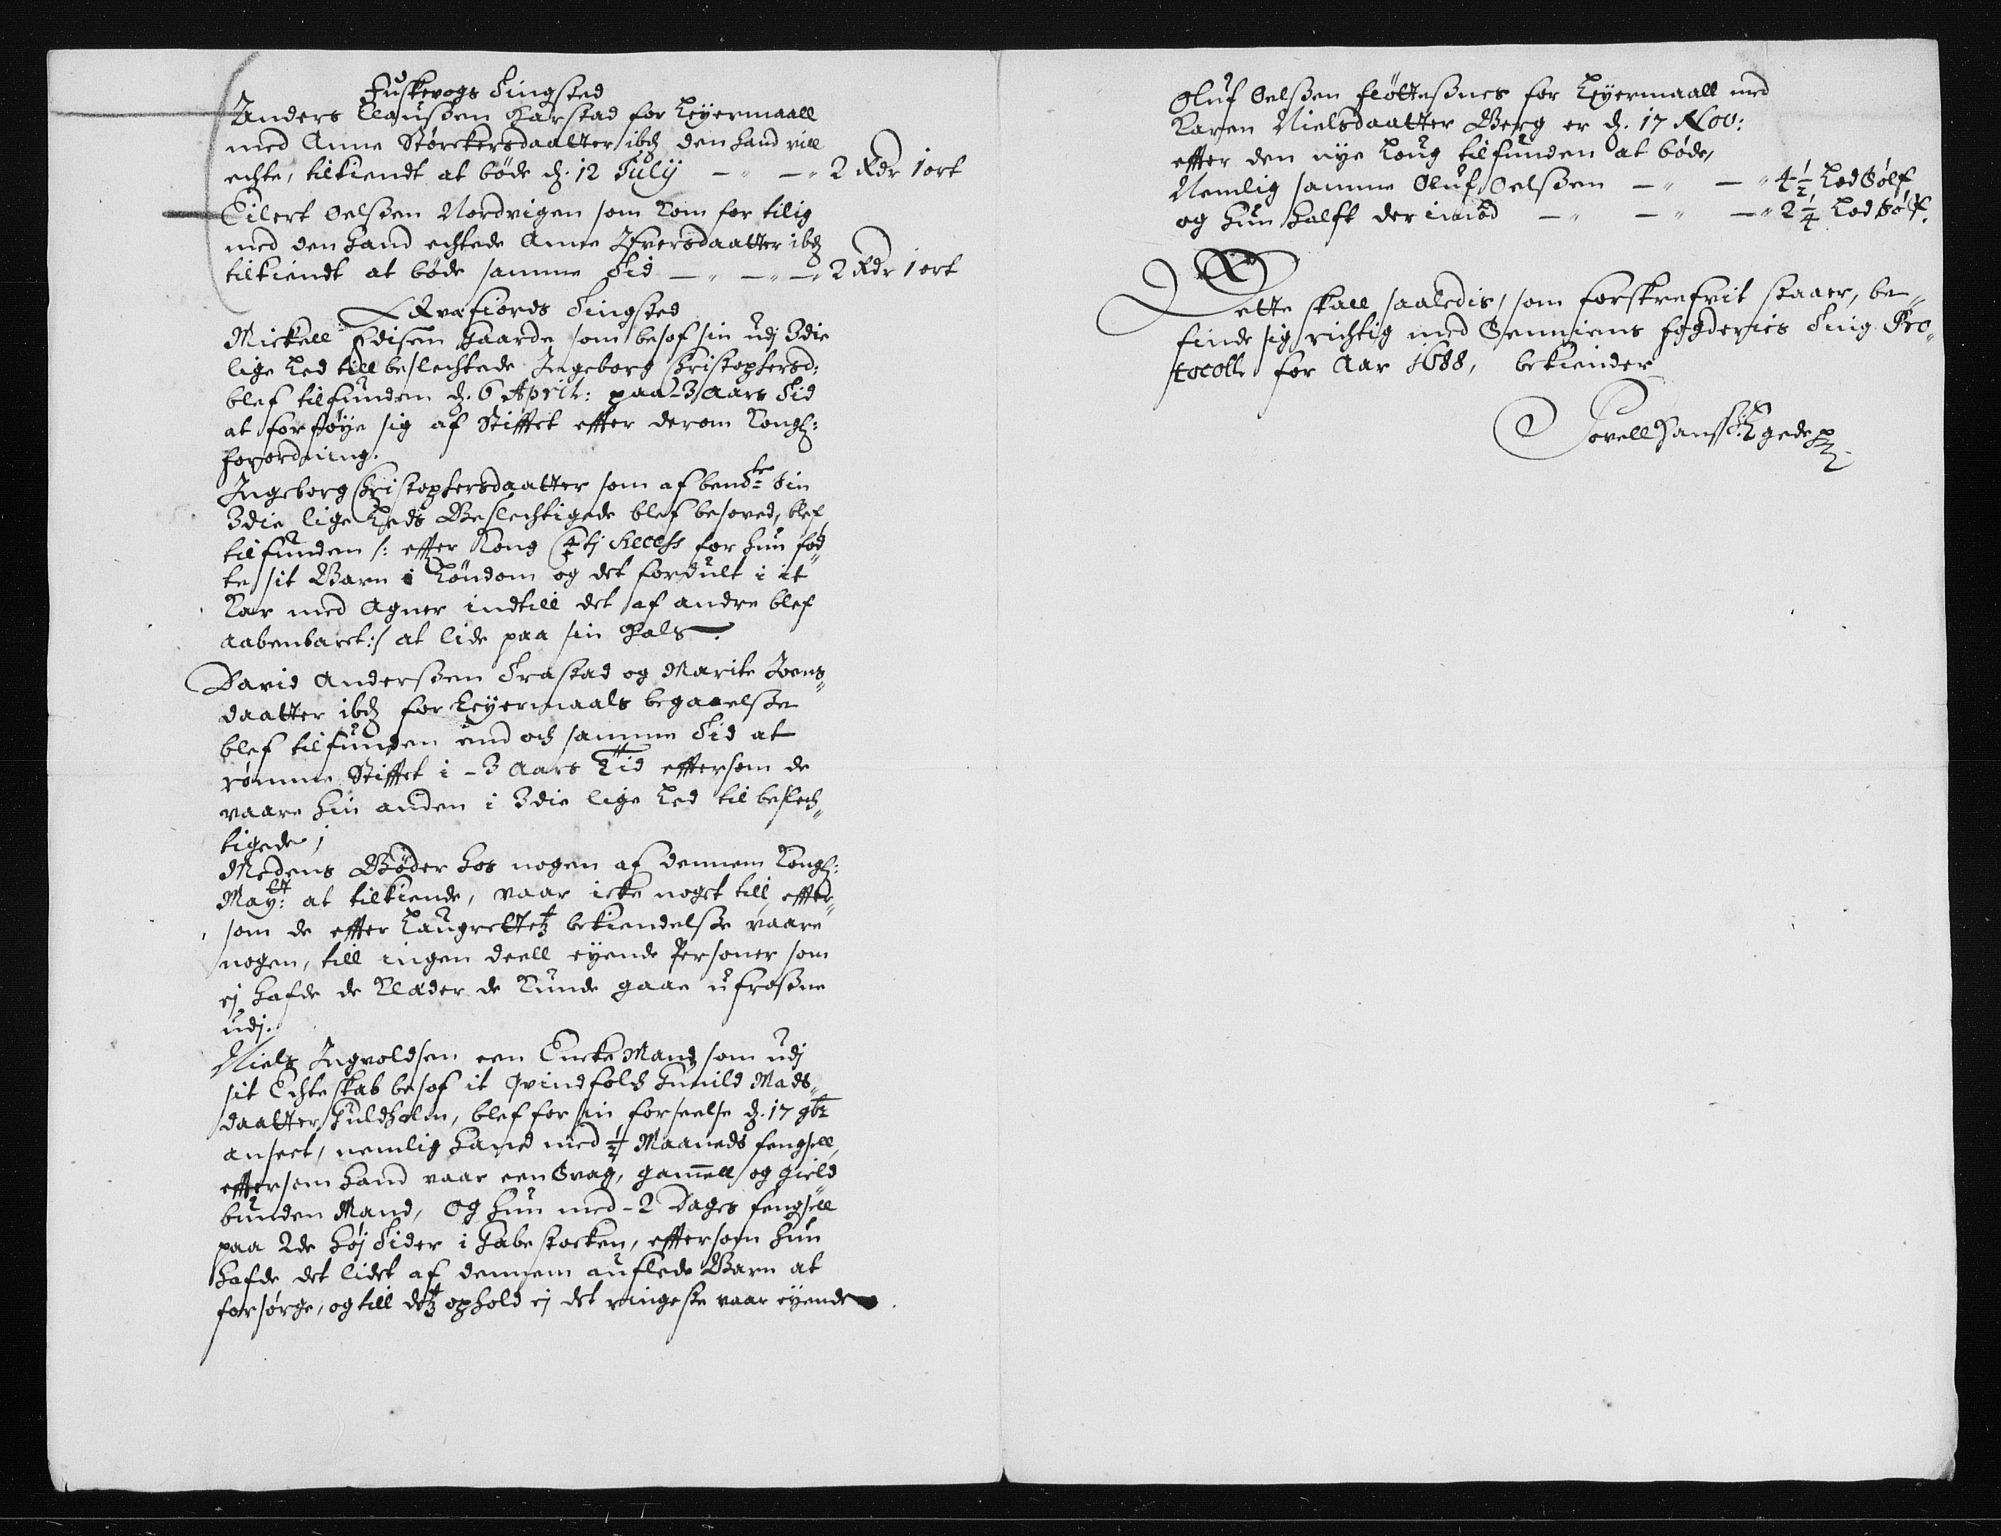 Fuskevogs Tingsted
Anders Clausßen Harstad for Leyermaall
med Anne Størckersdaatter ibd den hand vill
echte, tilkiendt at bøde d. 12 July — „ — „ 2 Rdr 1 ort
Eilert Oelsßen Nordvigen som kom for tilig
med den hand echtede Anne Ifversdaatter ibd
tilkiendt at bøde samme Tid — „ — „ — „ 2 Rdr 1 ort
Qvæfiords Tingsted
Mickell Edisen Gaarde som besof sin udj 3die
lige Led till beslechtede Ingeborg Christophersd:
blef tilfunden d. 6 April: paa 3 Aars Tid
at forføye sig af Stifftet effter derom Kongl:
forordning.
Ingeborg Christophersdaatter som af bemte sin
3die lige Leds Beslechtigede blef besoved, blef
tilfunden /: effter Kong C 4ti Recess for hun fød
te sit Barn i Løndom og det fordult i it
Kar med Agner indtill det af andre blef
aabenbaret :/ at lide paa sin Hals.
David Andersßen Trastad og Marite Joens„
daatter ibd for Leyermaals begaaelsße
blef tilfunden end och samme Tid at
rømme Stifftet i - 3 Aars Tid efftersom de
vaare hin anden i 3die lige Led til beslech„
tigede;
Medens Bøder hos nogen af dennem Kongl:
Maytt: at tilkiende, vaar icke noget till, effter„
som de effter Laugrettetz bekiendelsße vaare
nogen, till ingen deell eyende Personer som
ej hafde de Klæder de kunde gaae ufrosßne
udj.
Niels Ingvoldsen een Encke Mand som udj
sit Echteskab besof it Qvindfolch Gunild Mads„
daatter Guldholm, blef for sin forseelse d. 17 9br
anseet, nemlig hand med ½ Maaneds fengsell,
effersom hand vaar een Svag, gamell og gield
bunden Mand, og hun med - 2 Dages fengsell
paa 2de høj Tider i Gabestocken, effersom hun
hafde det lidet af dennem auflede Barn at
forsørge, og till detz ophold ej det ringeste vaar eyende.
Oluf Oelsßen Fløttesßnes for Leyermaall med
Karen Nielsdaatter Berg er d. 17 Nov:
effter den nye Loug tilfunden at bøde,
Nemlig samme Oluf Oelsßen — „ — „ 4½ Lod Sølf
og hun halft derimod — „ — „ — „ 2¼ Lod Sølf.
Dette skall saaledis, som forskrefvit staaer, be„
finde sig richtig med Senniens fogderies Ting Pro„
tocoll for Aar 1688, bekiender
Povell Hansß: Egede